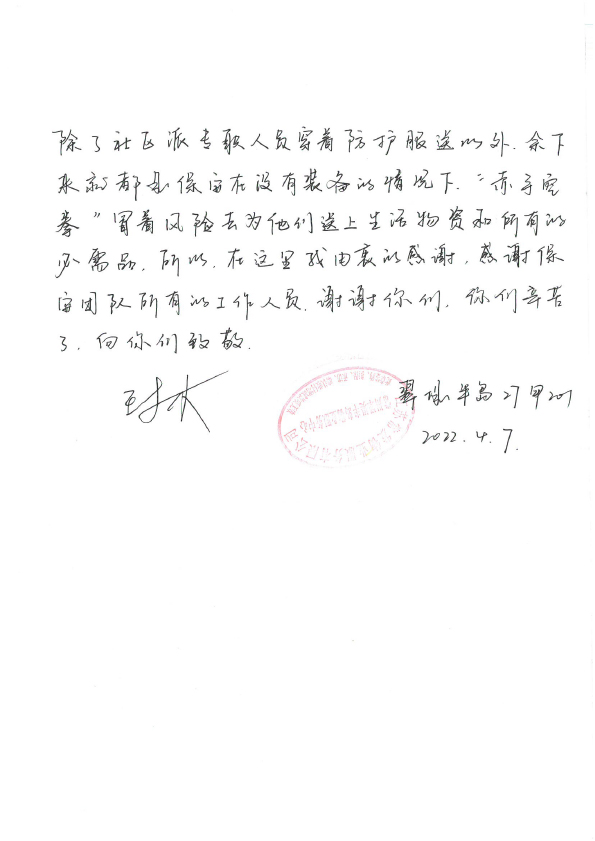 除了社区派专职人员穿着防护服送以外，余下
来就都是保安在没有装备的情况下，“赤手空
拳”冒着风险去为他们送上生活物资和所有的
必需品，所以，在这里我由衷的感谢，感谢保
安团队所有的工作人员，谢谢你们，你们辛苦
了，向你们致敬．
半岛27甲201
2022.4.7．